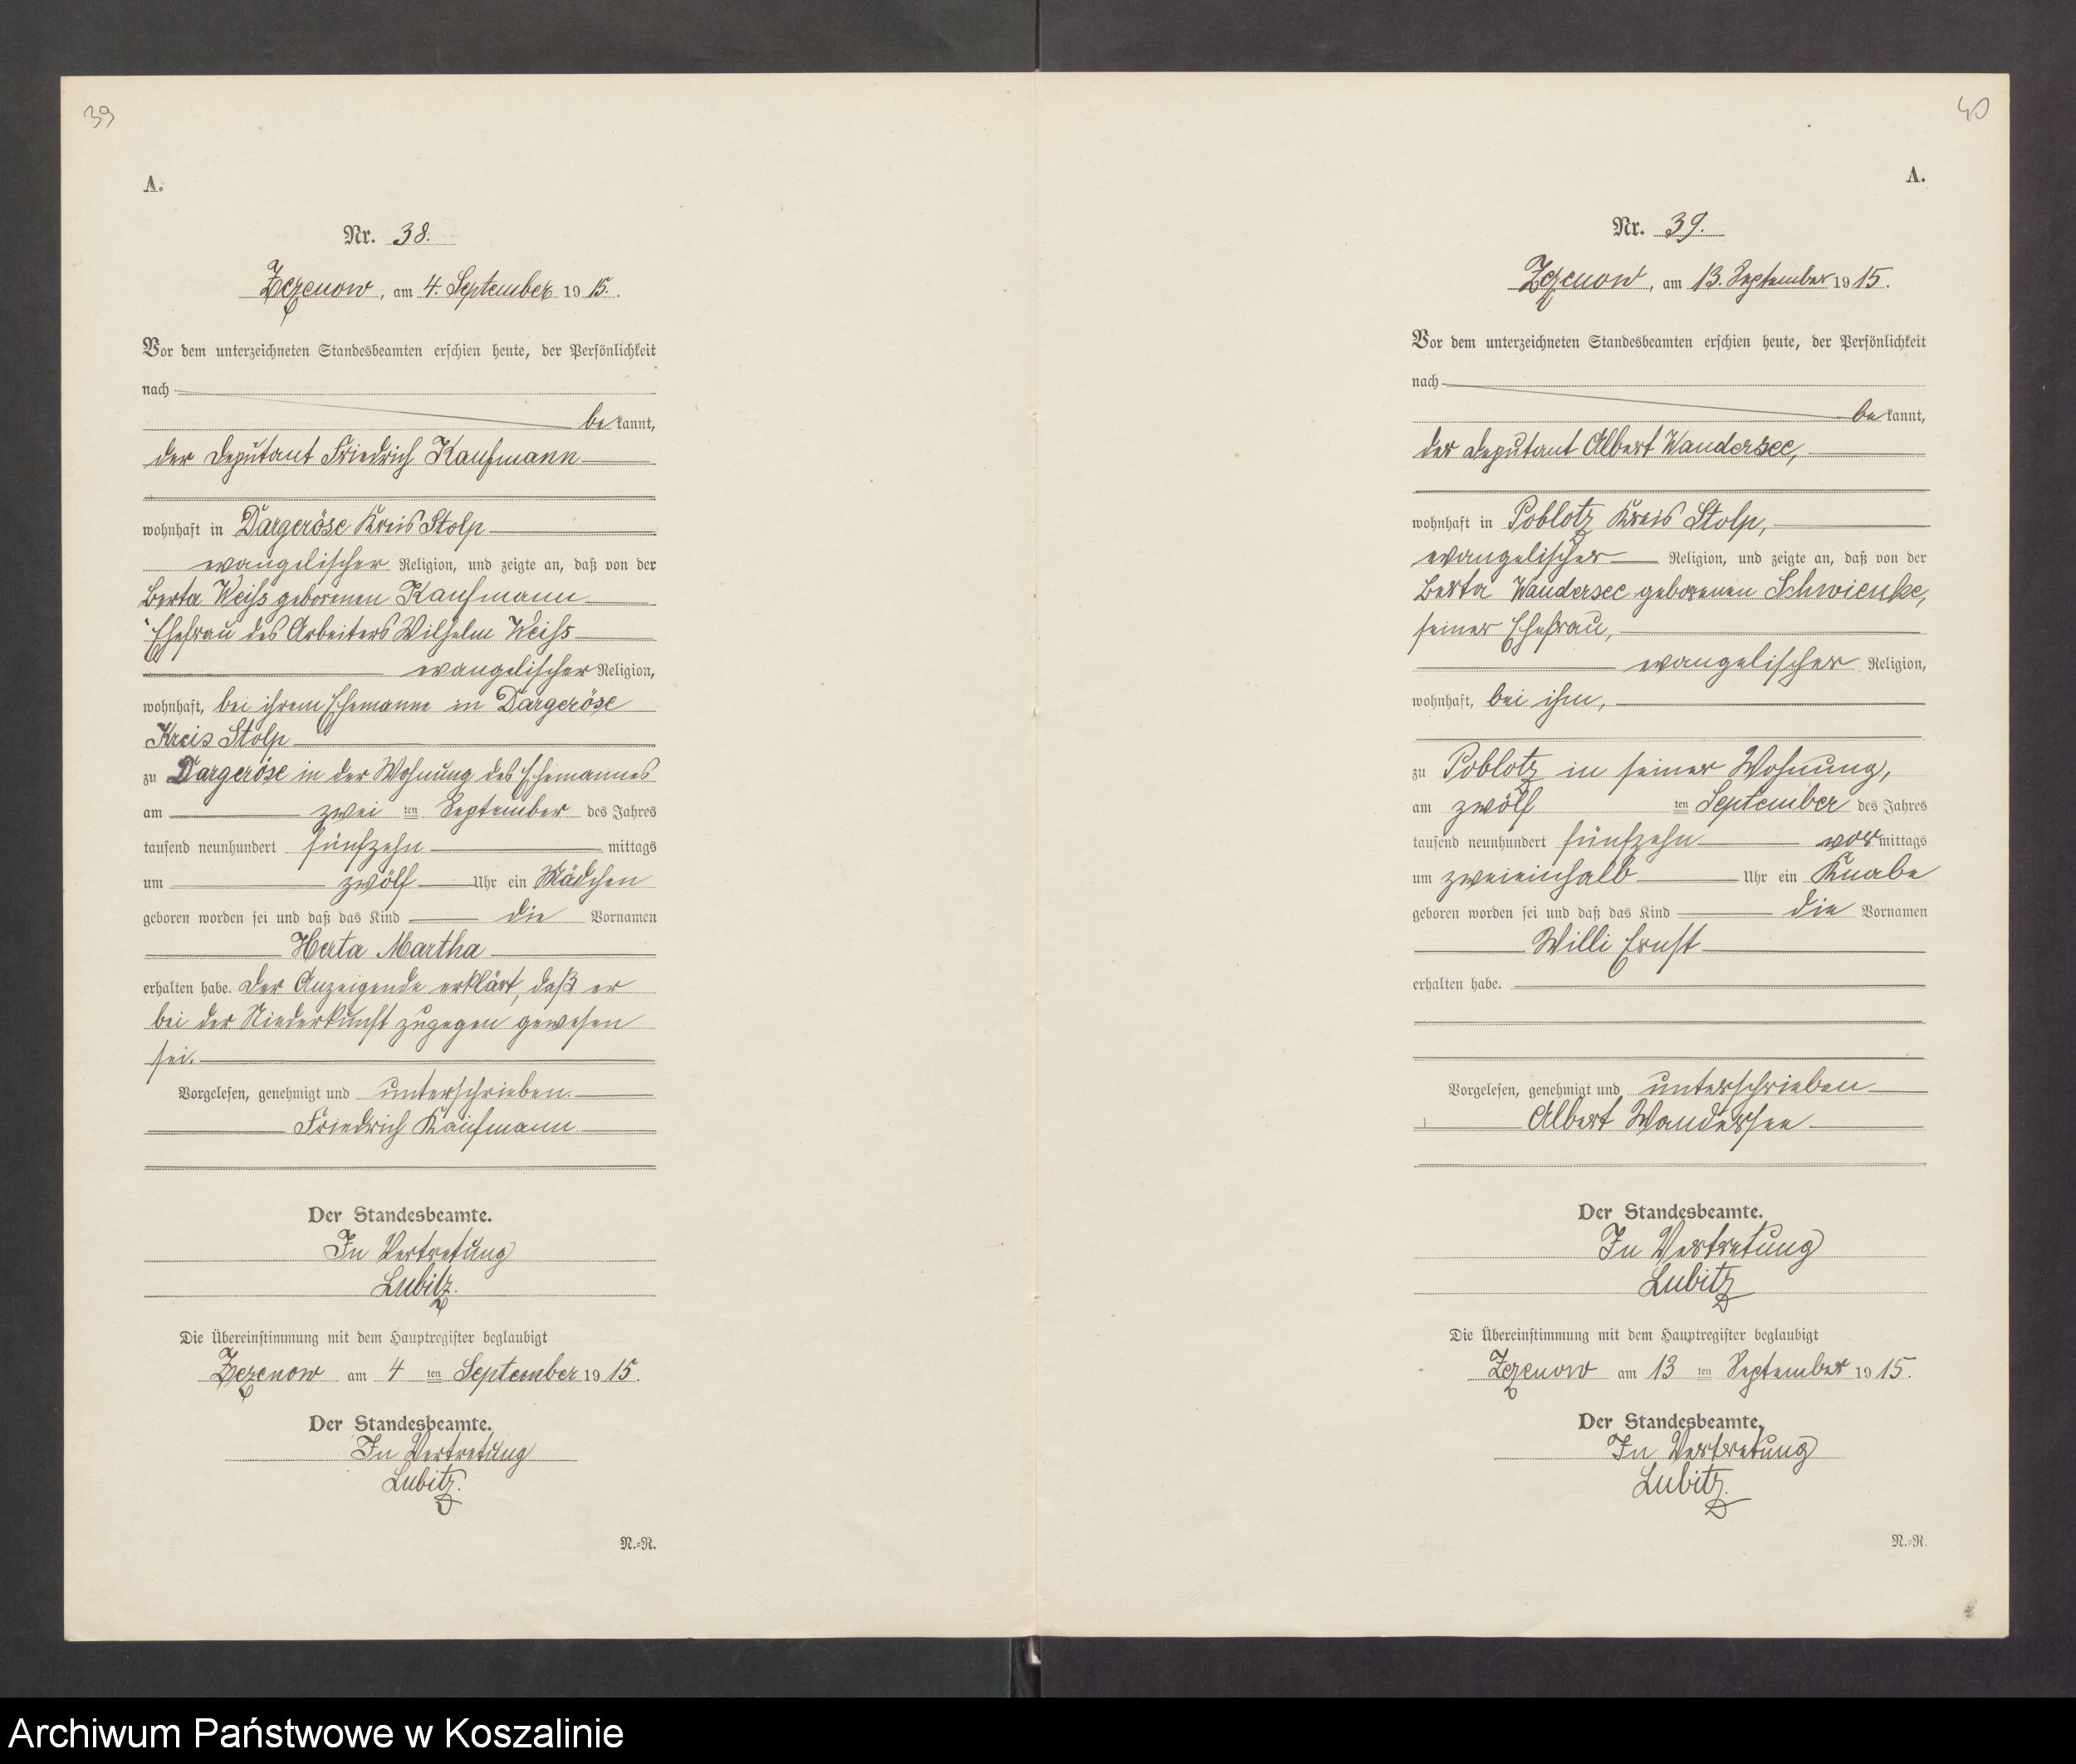 39
A.
Nr. 38.
Zezenow, am 4. September 1915.
Vor dem unterzeichneten Standesbeamten erschien heute, der Persönlichkeit
nach
bekannt,
der Deputant Friedrich Kaufmann
wohnhaft in Dargeröse Kreis Stolp
evangelischer Religion, und zeigte an, daß von der
Berta Weiß geborenen Kaufmann
Ehefrau des Arbeiters Wilhelm Weiß
evangelischer Religion,
wohnhaft, bei ihrem Ehemanne in Dargeröse
Kreis Stolp
zu Dargeröse in der Wohnung des Ehemannes
am zwei ten September des Jahres
tausend neunhundert fünfzehn mittags
um zwölf Uhr ein Mädchen
geboren worden sei und daß das Kind die Vornamen
Herta Martha
erhalten habe. Der Anzeigende erklärt, daß er
bei der Niederkunft zugegen gewesen
sei.
Vorgelesen, genehmigt und unterschrieben.
Friedrich Kaufmann
Der Standesbeamte.
In Vertretung
Lubitz.
Die Übereinstimmung mit dem Hauptregister beglaubigt
Zezenow am 4 ten September 1915.
Der Standesbeamte.
In Vertretung
Lubitz.
N.=R.
40
A.
Nr. 39.
Zezenow, am 13. September 1915.
Vor dem unterzeichneten Standesbeamten erschien heute, der Persönlichkeit
nach
bekannt,
der Deputant Albert Wandersee,
wohnhaft in Poblotz Kreis Stolp,
evangelischer Religion, und zeigte an, daß von der
Berta Wandersee geborenen Schwienke,
seiner Ehefrau,
evangelischer Religion,
wohnhaft, bei ihm,
zu Poblotz in seiner Wohnung,
am zwölf ten September des Jahres
tausend neunhundert fünfzehn vormittags
um zweieinhalb Uhr ein Knabe
geboren worden sei und daß das Kind die Vornamen
Willi Ernst
erhalten habe.
Vorgelesen, genehmigt und unterschrieben
Albert Wandersee
Der Standesbeamte.
In Vertretung
Lubitz
Die Übereinstimmung mit dem Hauptregister beglaubigt
Zezenow am 13 ten September 1915.
Der Standesbeamte.
In Vertretung
Lubitz.
N.=R.
Archiwum Państwowe w Koszalinie